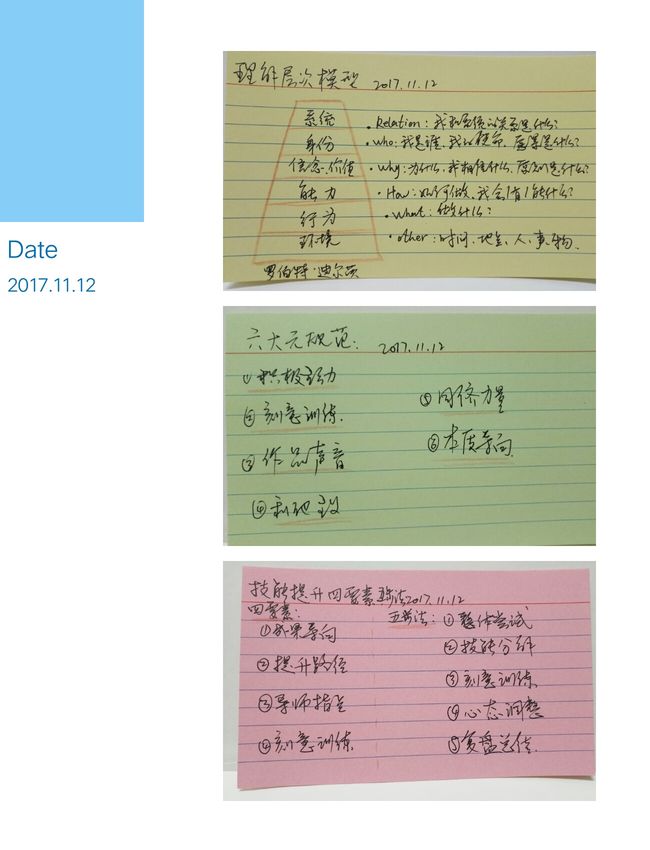 Date
2017.11.12
理解层次模型 2017.11.12
系统 · Relation: 我和系统的关系是什么?
身份 · who: 我是谁、我的使命、愿景是什么?
信念、价值 · why: 为什么,我相信什么,原则是什么?
能力 · How: 如何做,我会/有/能什么?
行为 · what: 做什么?
环境 · other: 时间、地点、人、事、物.
罗伯特·迪尔茨
六大元规范: 2017.11.12
① 积极主动
② 刻意训练.
③ 作品声音
④ 利他
⑤ 同侪力量
⑥ 本质导向
技能提升四要素五步法2017.11.12
四要素:
①成果导向
②提升路径
③导师指点
④刻意训练.
五步法: ①整体尝试
②技能分解
③刻意训练
④心态调整
⑤复盘总结.